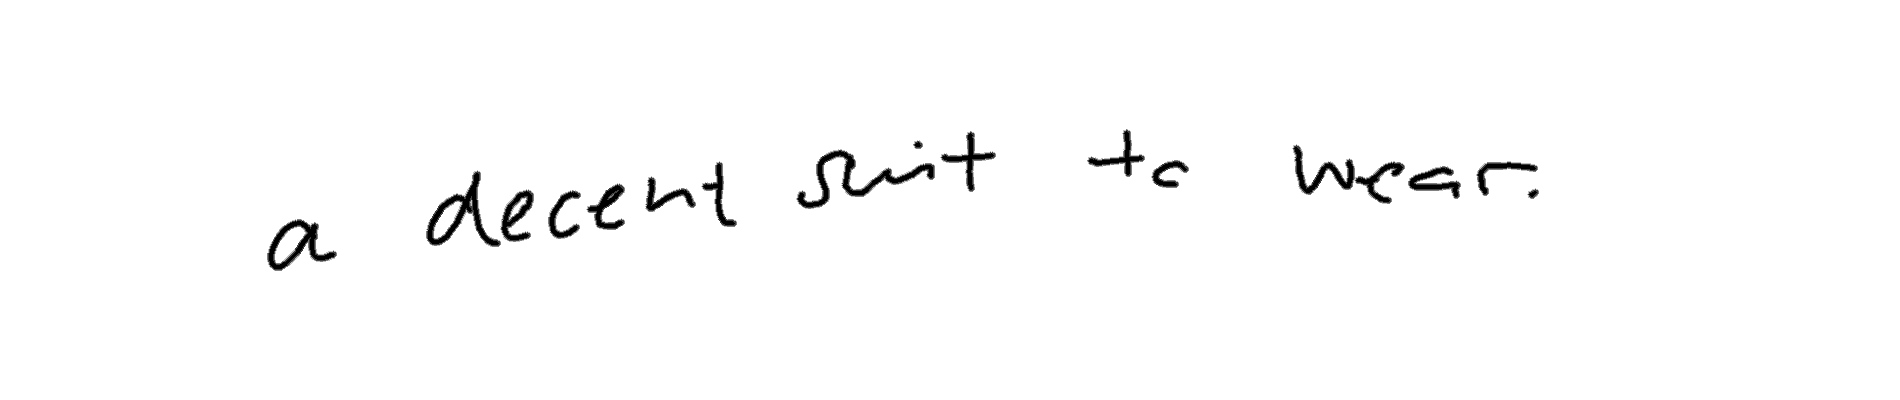 a decent suit to wear.